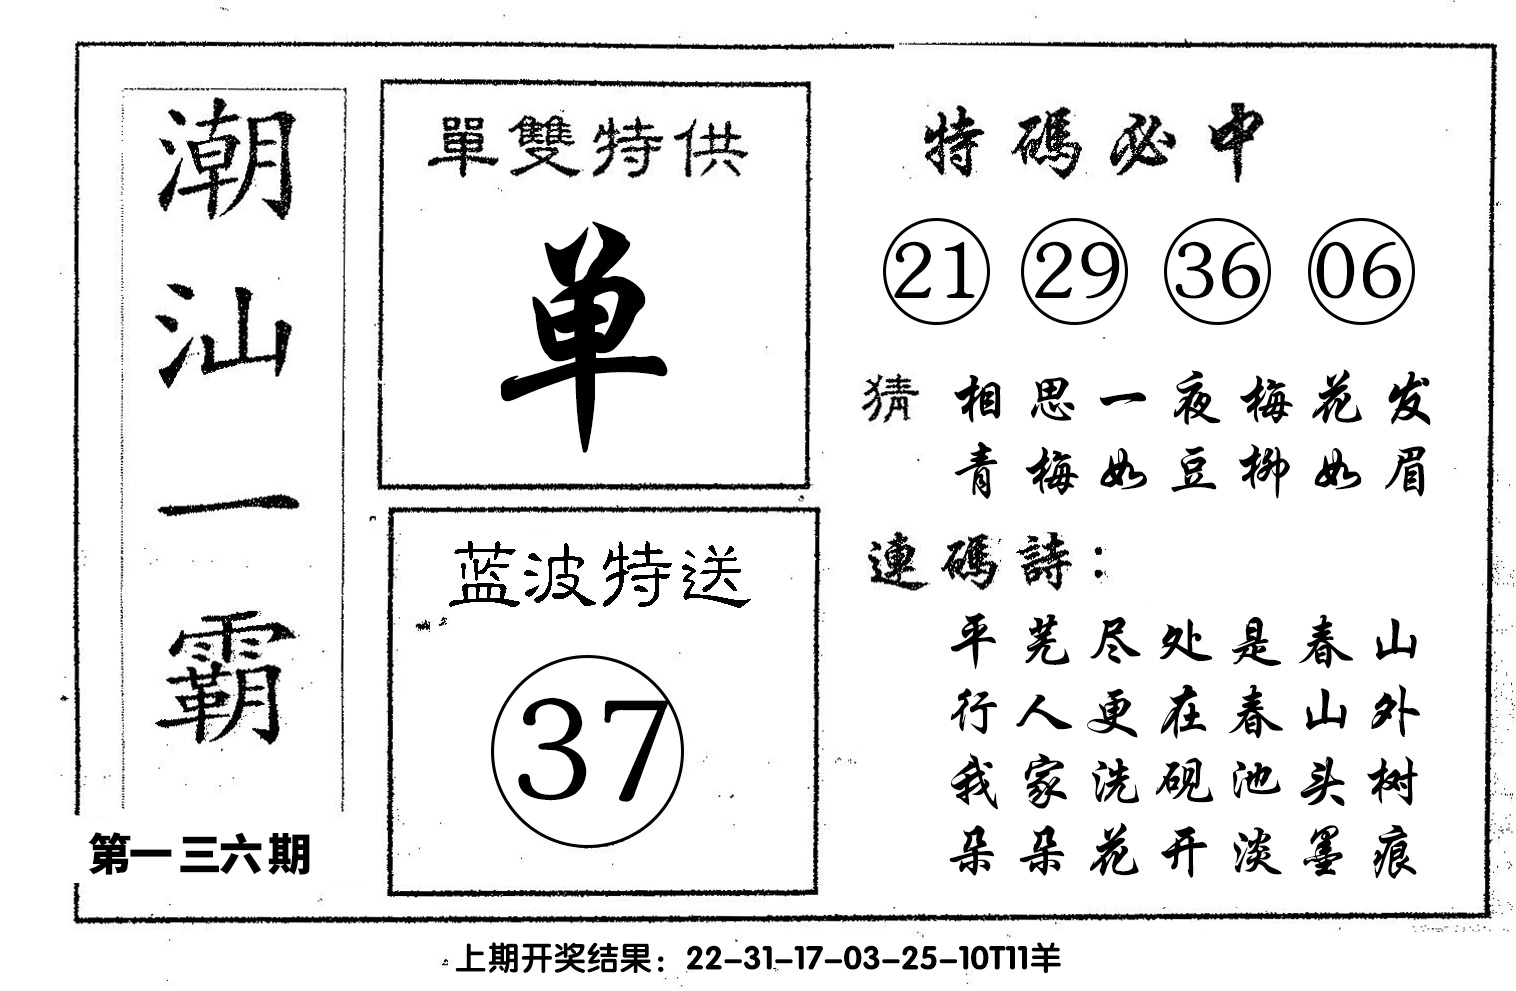 潮汕一霸
第一三六期
單雙特供
单
蓝波特送
37
特碼必中
21 29 36 06
猜 相思一夜梅花发
青梅如豆柳如眉
連碼詩：
平芜尽处是春山
行人更在春山外
我家洗砚池头树
朵朵花开淡墨痕
上期开奖结果：22-31-17-03-25-10T11羊